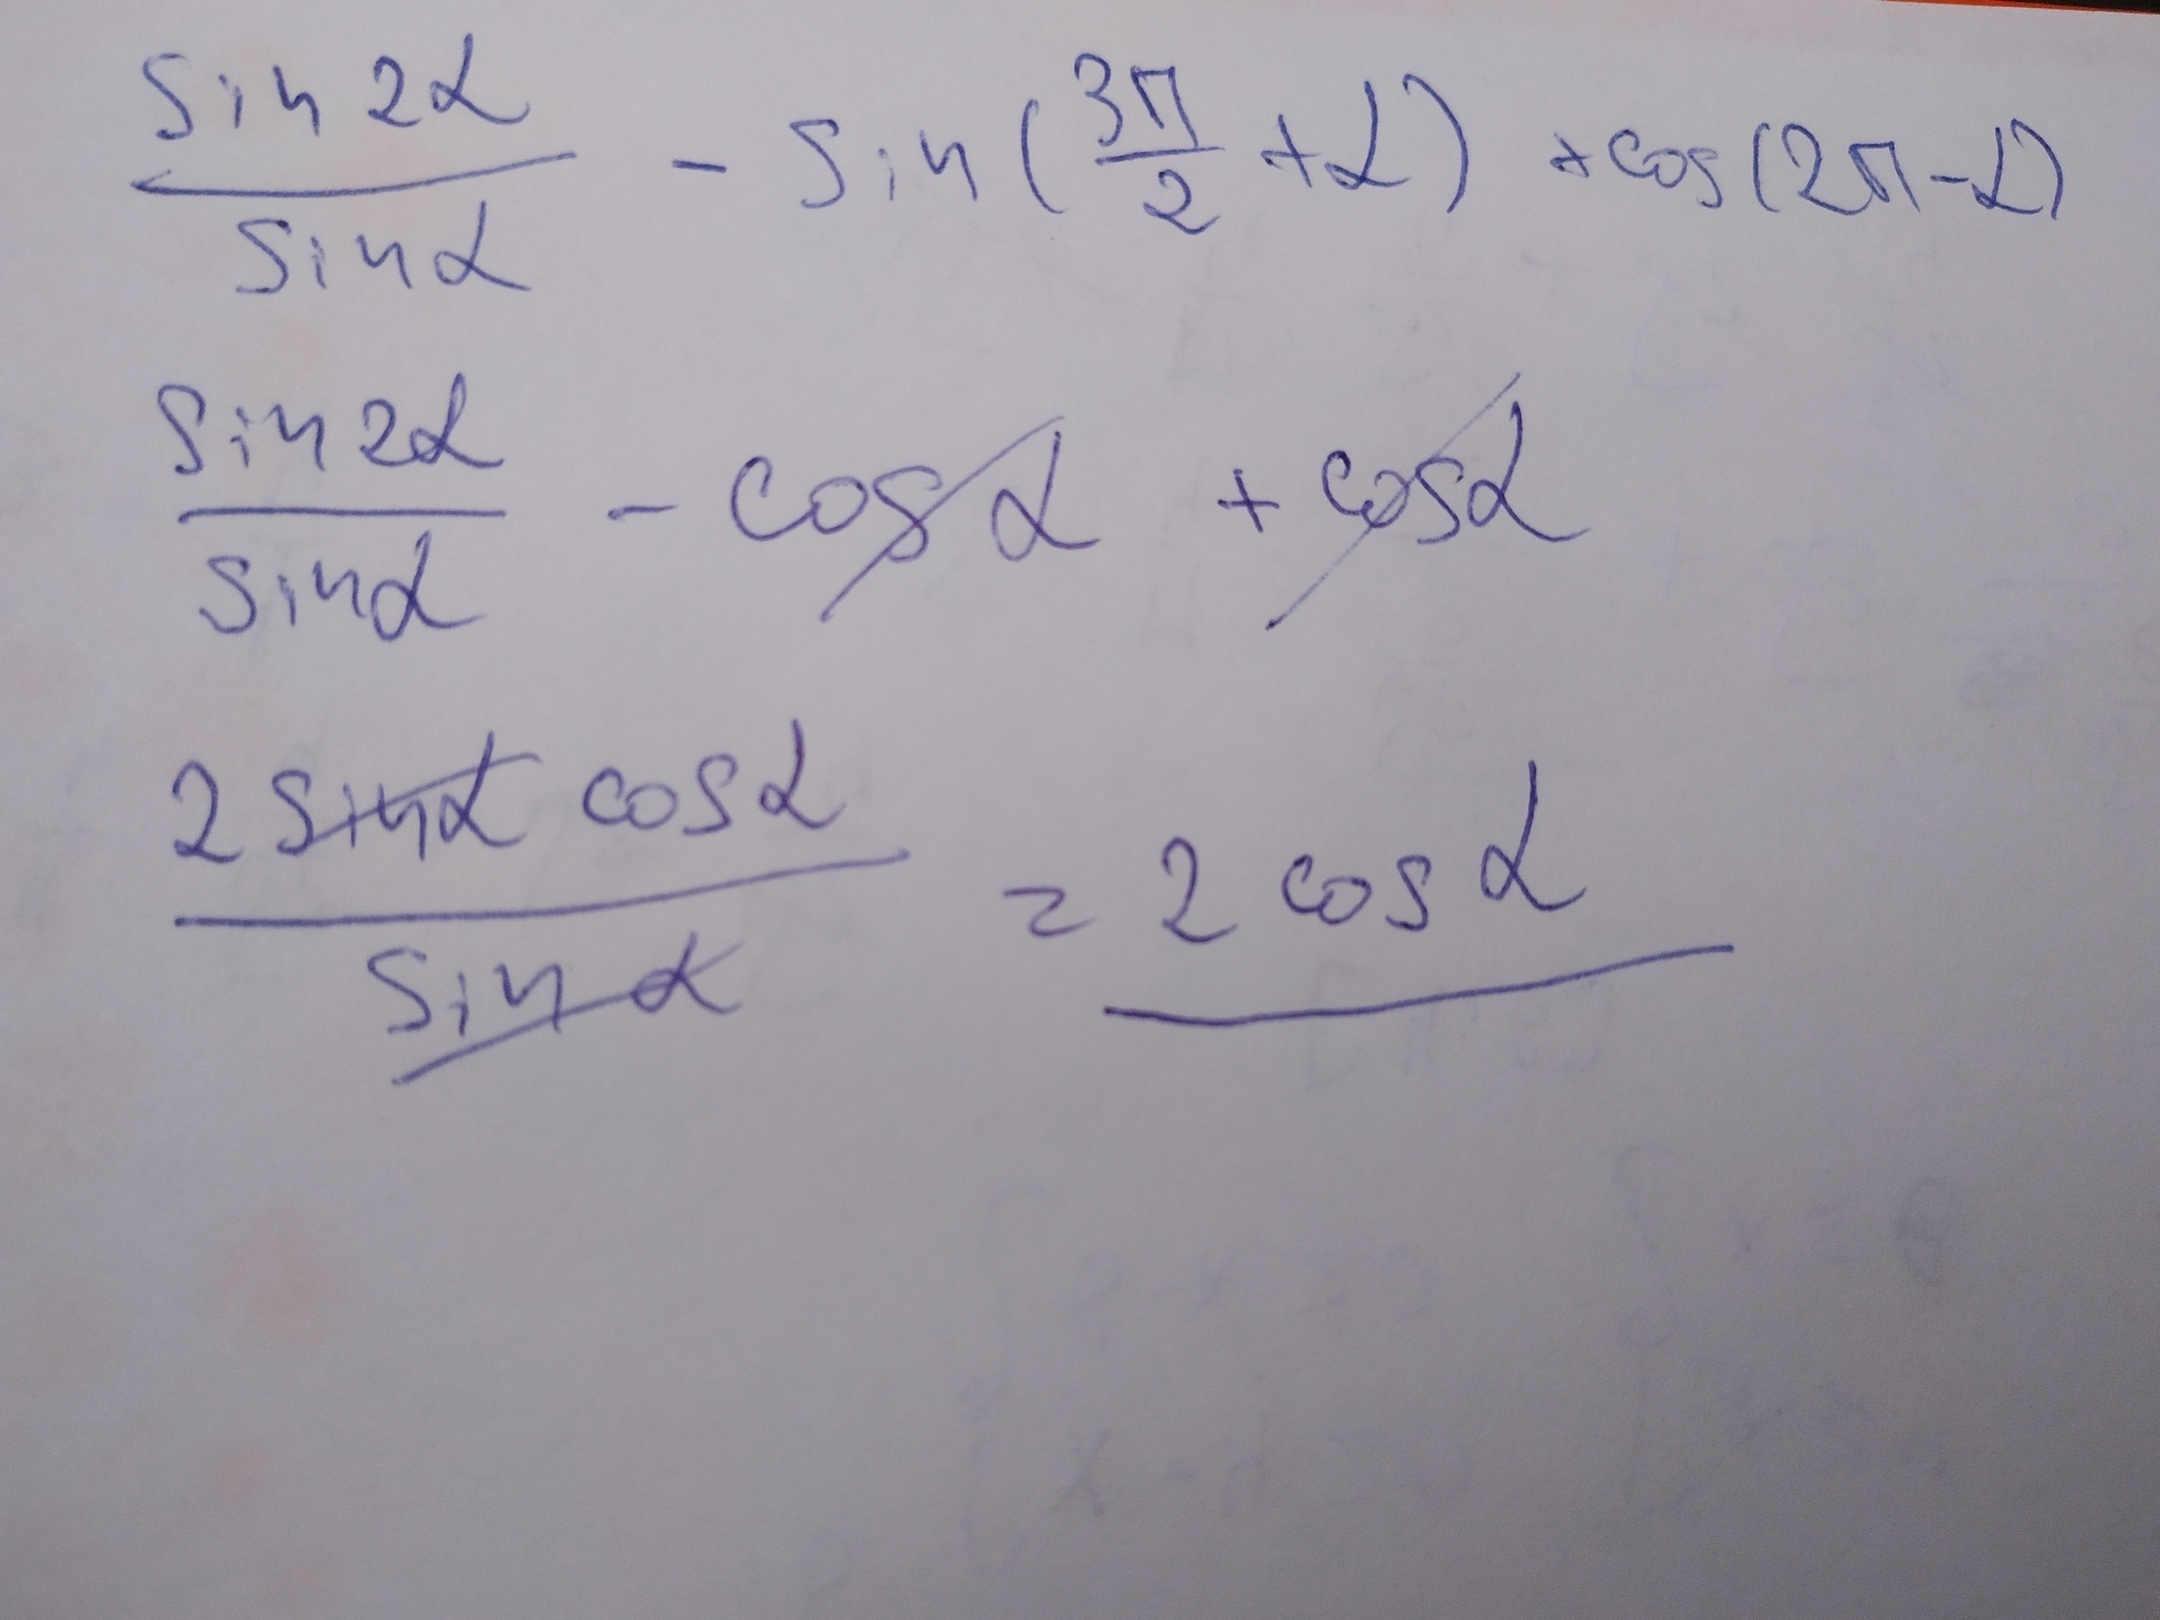 sin 2α / sin α - sin (3π/2 + α) + cos (2π - α)
sin 2α / sin α - cos α + cos α
2 sin α cos α / sin α = 2 cos α